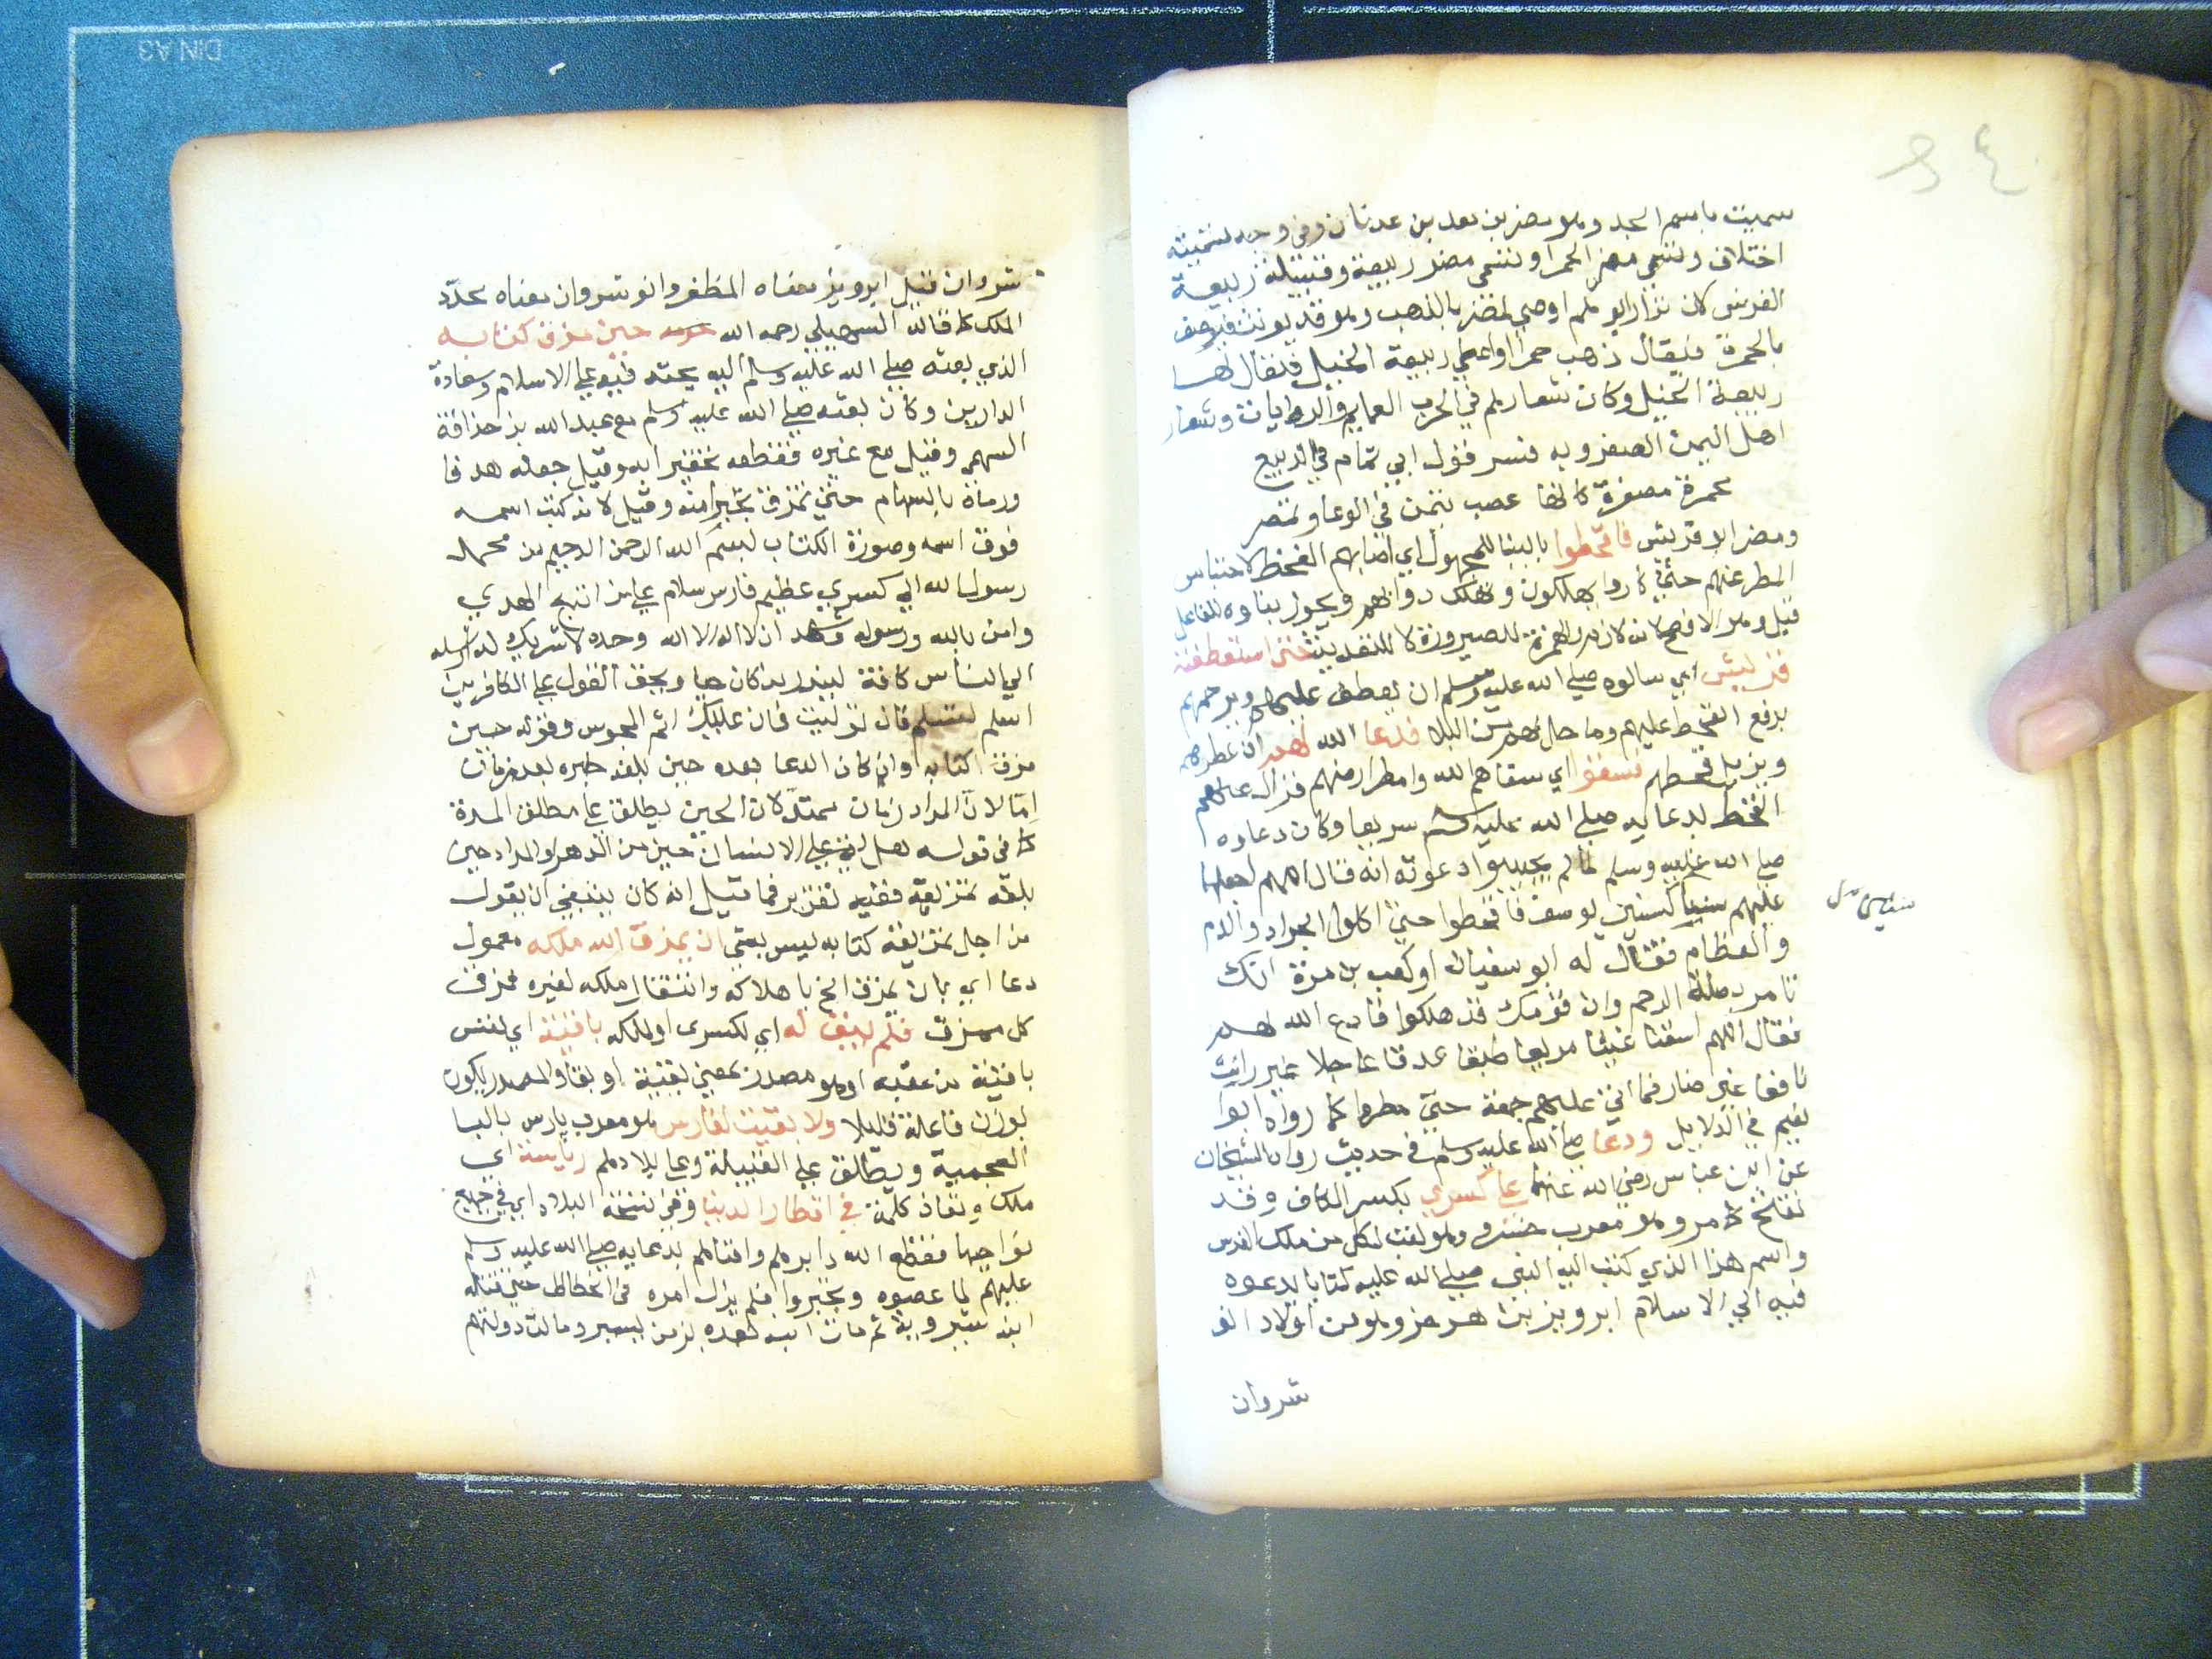 سميت باسم الجد وهو مضر بن معد بن عدنان وفي وجه تسميته
اختلاف وتسمى مضر الحمرا وتسمى مضر ربيعة وقبيلة ربيعة
الفرس كان نزار ابوهم اوصى لمضر بالذهب وهو قد يونث فيوصف
بالحمرة فيقال ذهب حمرا واعطى ربيعة الخيل فيقال لها
ربيعة الخيل وكان شعارهم في الحرب العمايم والرايات وشعار
اهل اليمن الصفر وبه فسر قول ابي تمام في الربيع
محمرة مصفرة كانها عصب تيمن في الوغا وتمضر
ومضر ابو قريش فاقحطوا بالبنا للمجهول اي اصابهم القحط لاحتباس
المطر عنهم حتى كادوا يهلكون وتهلك دوابهم ويجوز بناوه للفاعل
قيل وهو الافصح لان الهمزة للصيرورة لا للتعدية حتى استعطفته
قريش اي سالوه صلى الله عليه وسلم ان يعطف عليهم ويرحمهم
برفع القحط عليهم وما حل بهم من البلا فدعا الله لهم ان يمطرهم
ويزيل قحطهم فسقوا اي سقاهم الله وامطر ارضهم فزال عنهم
القحط لدعايه صلى الله عليه وسلم سريعا وكان دعاوه
صلى الله عليه وسلم لما لم يجيبوا دعوته انه قال اللهم اجعلها
عليهم سنينا كسنين يوسف فاقحطوا حتى اكلوا الجراد والدم
والعظام فقال له ابو سفيان او كعب بن مرة انك
تامر بصلة الرحم وان قومك قد هلكوا فادع الله لهم
فقال اللهم اسقنا غيثا مريعا طبقا غدقا عاجلا غير رائث
نافعا غير ضار فما اتى عليهم جمعة حتى مطروا كما رواه ابو
نعيم في الدلايل ودعا صلى الله عليه وسلم في حديث رواه الشيخان
عن ابن عباس رضي الله عنهما على كسرى بكسر الكاف وقد
تفتح لامر وهو معرب خسرو وهو لقب لكل من ملك الفرس
واسم هذا الذي كتب اليه النبي صلى الله عليه كتابا يدعوه
فيه الى الاسلام ابرويز بن هرمز وهو من اولاد انو
شروان
شروان قيل ابرويز معناه المظفر وانوشروان معناه مجدد
الملك كما قاله السهيلي رحمه الله حين مزق كتابه
الذي بعثه صلى الله عليه وسلم اليه يحثه فيه على الاسلام وسعادة
الدارين وكان بعثه صلى الله عليه وسلم مع عبد الله بن حذافة
السهمي وقيل مع غيره فقطعه تحقيرا له وقيل جعله هدفا
ورماه بالسهام حتى تمزق تجبرا منه وقيل لانه كتب اسمه
فوق اسمه وصورة الكتاب بسم الله الرحمن الرحيم من محمد
رسول الله الى كسرى عظيم فارس سلام على من اتبع الهدى
وامن بالله ورسوله وشهد ان لا اله الا الله وحده لا شريك له ارسله
الى الناس كافة لينذر من كان حيا ويحق القول على الكافرين
اسلم تسلم فان توليت فان عليك اثم المجوس وقوله حين
مزق كتابه وان كان الدعا بعده حين بلغه خبره بعد زمان
اما لان المراد زمان ممتد لان الحين يطلق على مطلق المدة
كما في قوله هل اتى على الانسان حين من الدهر او المراد حين
بلغه تمزيقه ففيه تقدير فما قيل انه كان ينبغي ان يقول
من اجل تمزيقه كتابه ليس بشي ان يمزق الله ملكه معمول
دعا اي بان يمزق الخ باهلاكه وانتقال ملكه لغيره فمزق
كل ممزق فلم يبق له اي لكسرى او لملكه باقية اي نفس
باقية من عقبه او هو مصدر بمعنى بقية او بقا والمصدر يكون
بوزن فاعلة قليلا ولا بقيت لفارس هو معرب پارس بالبا
العجمية ويطلق على القبيلة وعلى بلادهم رياسة اي
ملك ونفاذ كلمة في اقطار الدنيا وفي نسخة البلاد اي في جميع
نواحيها فقطع الله دابرهم وافناهم بدعايه صلى الله عليه وسلم
عليهم لما عصوه وتجبروا فلم يزل امره في انحطاط حتى قتله
ابنه شيرويه ثم مات ابنه بعده بزمن يسير وما لت دولتهم